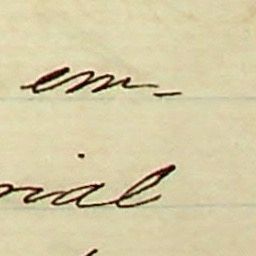 em-
rial